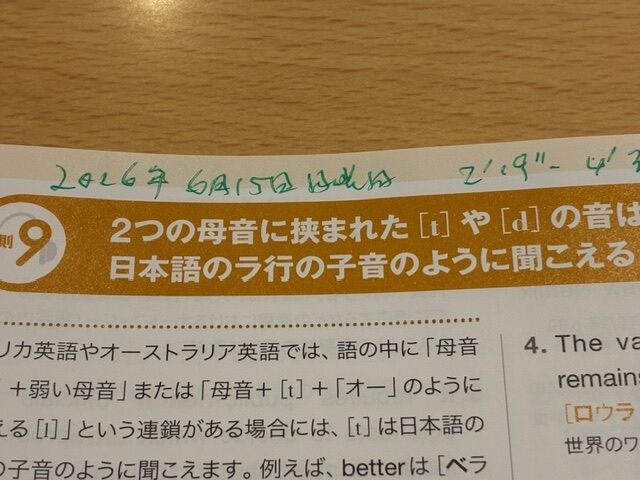 2026年 6月15日 日曜日 2'19"- 4'
則9
2つの母音に挟まれた [t] や [d] の音は
日本語のラ行の子音のように聞こえる
リカ英語やオーストラリア英語では、語の中に「母音
+弱い母音」または「母音+ [t] +「オー」のように
える [l]」という連鎖がある場合には、[t] は日本語の
の子音のように聞こえます。例えば、better は [ベラ
4. The va
remains
[ロウラ
世界のワ